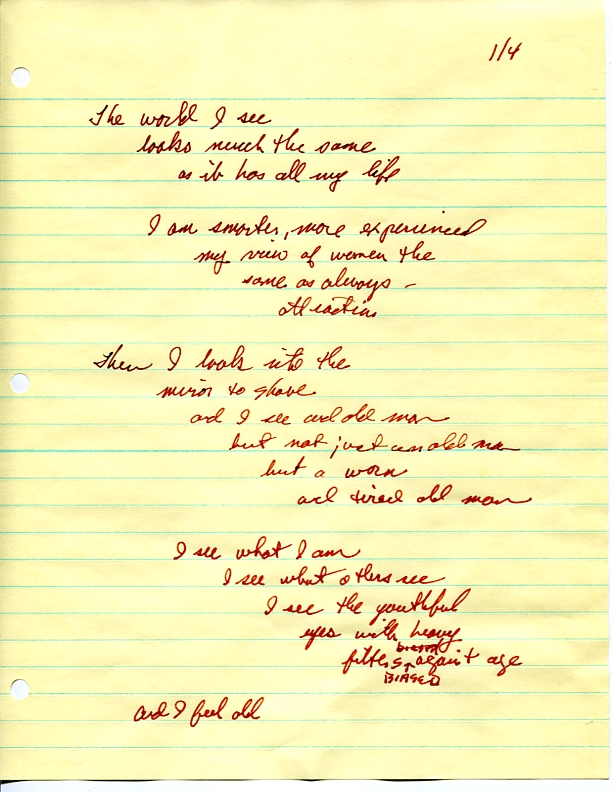 1/4
The world I see
looks much the same
as it has all my life
I am smarter, more experienced
my view of women the
same as always –
attractive
Then I look into the
mirror to shave
and I see and old man
but not just an old man
but a worn
and tired old man
I see what I am
I see what others see
I see the youthful
eyes with heavy
biased
filters against age
BIASED
and I feel old